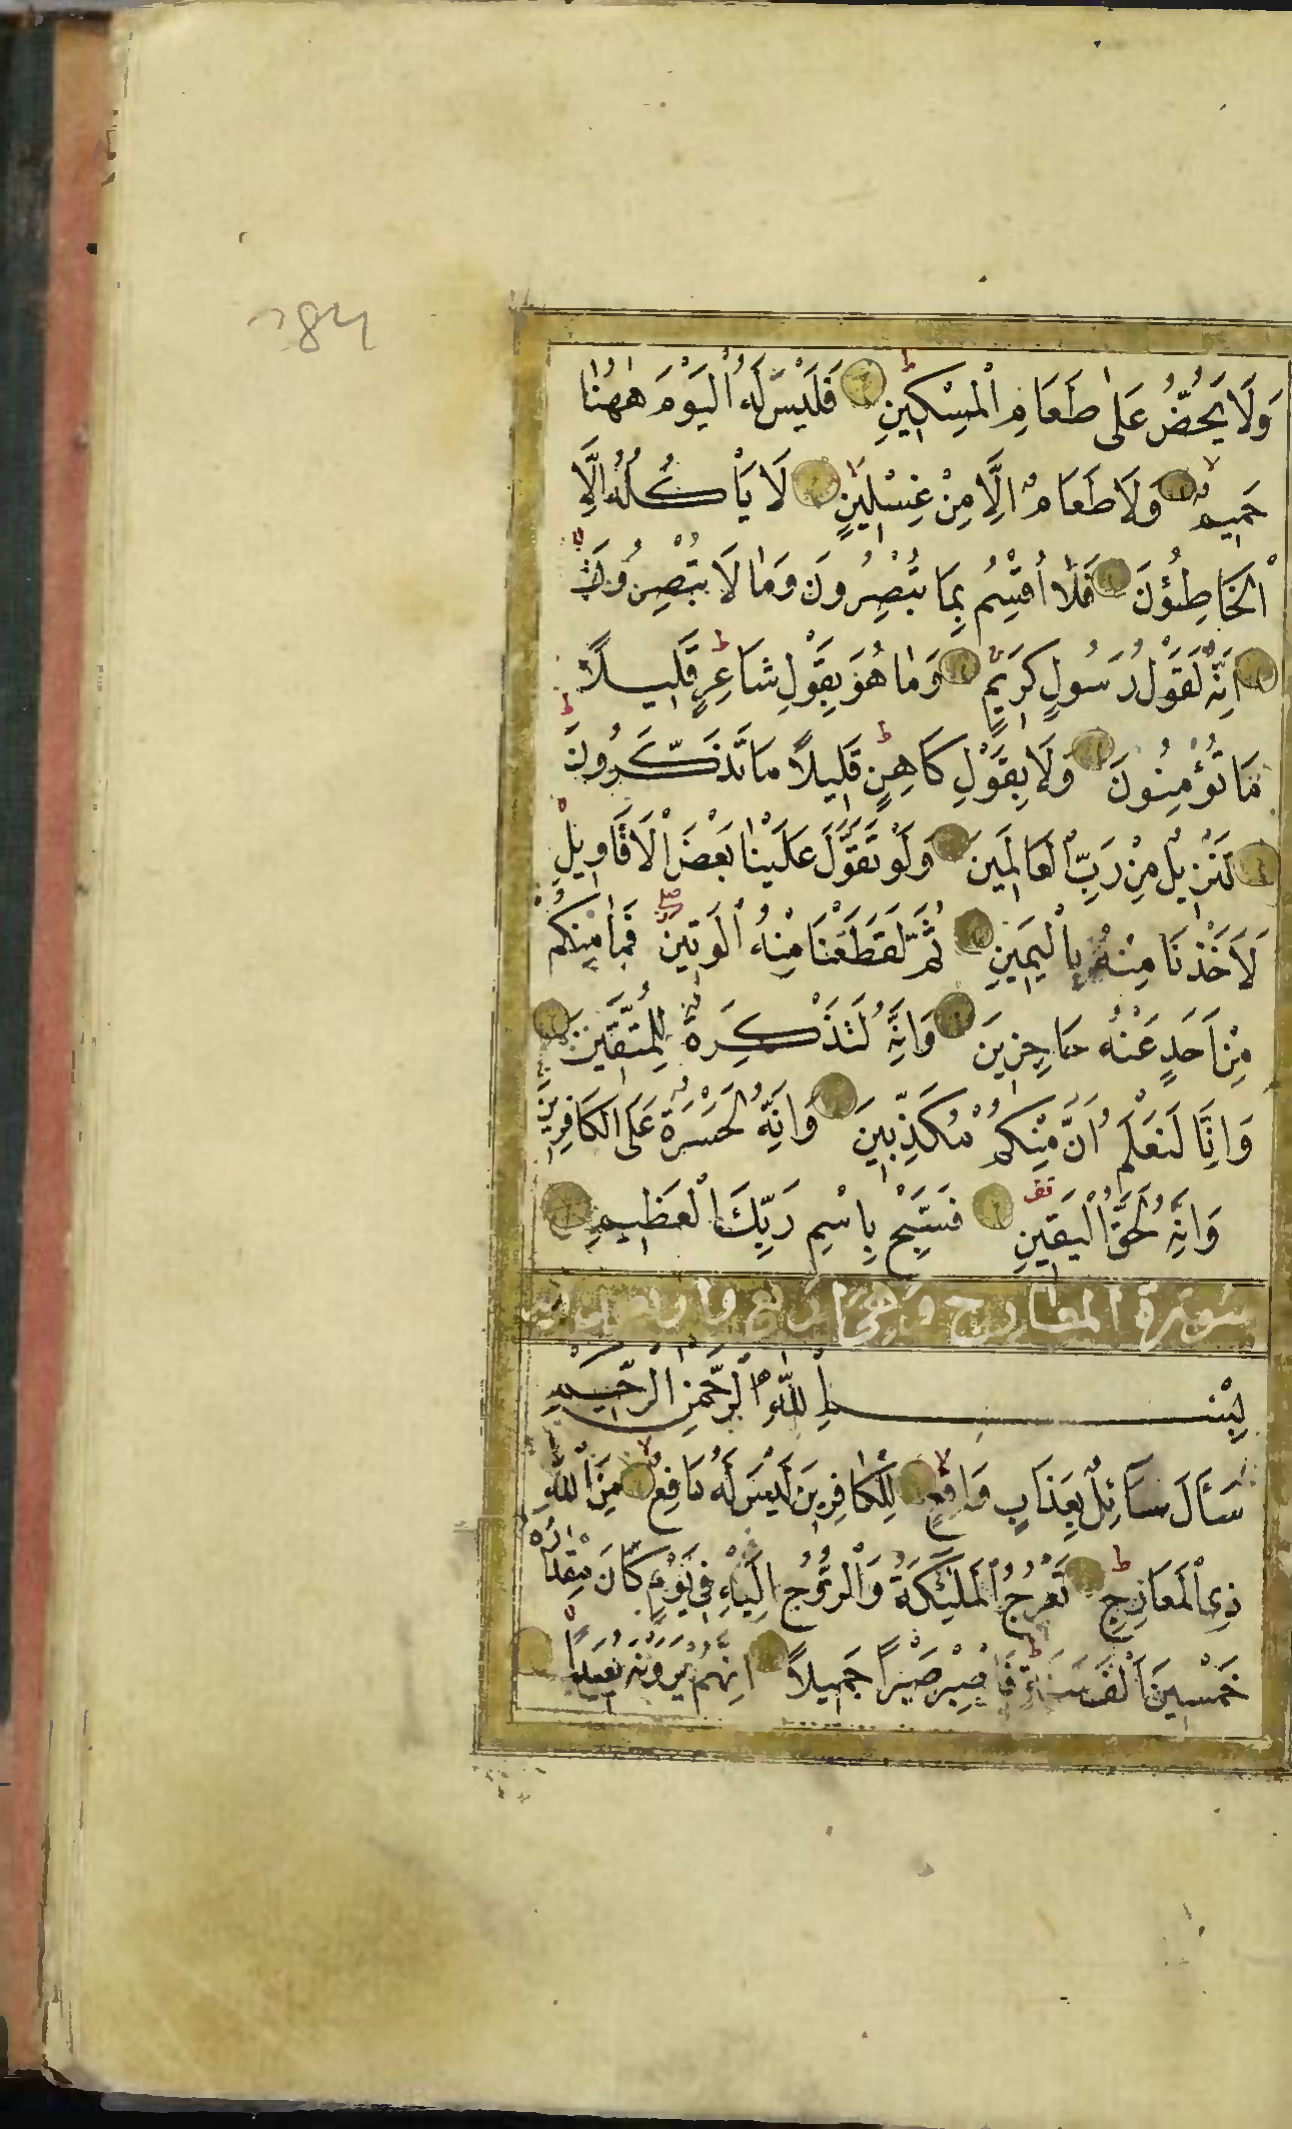 284
وَلَا يَحُضُّ عَلٰى طَعَامِ الْمِسْكِينِ فَلَيْسَ لَهُ الْيَوْمَ هٰهُنَا
حَمِيمٌ وَلَا طَعَامٌ اِلَّا مِنْ غِسْلِينٍ لَا يَأْكُلُهُ اِلَّا
الْخَاطِئُونَ فَلَا اُقْسِمُ بِمَا تُبْصِرُونَ وَمَا لَا تُبْصِرُونَ
اِنَّهُ لَقَوْلُ رَسُولٍ كَرِيمٍ وَمَا هُوَ بِقَوْلِ شَاعِرٍ قَلِيلًا
مَا تُؤْمِنُونَ وَلَا بِقَوْلِ كَاهِنٍ قَلِيلًا مَا تَذَكَّرُونَ
تَنْزِيلٌ مِنْ رَبِّ الْعَالَمِينَ وَلَوْ تَقَوَّلَ عَلَيْنَا بَعْضَ الْاَقَاوِيلِ
لَاَخَذْنَا مِنْهُ بِالْيَمِينِ ثُمَّ لَقَطَعْنَا مِنْهُ الْوَتِينَ فَمَا مِنْكُمْ
مِنْ اَحَدٍ عَنْهُ حَاجِزِينَ وَاِنَّهُ لَتَذْكِرَةٌ لِلْمُتَّقِينَ
وَاِنَّا لَنَعْلَمُ اَنَّ مِنْكُمْ مُكَذِّبِينَ وَاِنَّهُ لَحَسْرَةٌ عَلَى الْكَافِرِينَ
وَاِنَّهُ لَحَقُّ الْيَقِينِ فَسَبِّحْ بِاسْمِ رَبِّكَ الْعَظِيمِ
سُورَةُ الْمَعَارِجِ وَهِيَ اَرْبَعٌ وَاَرْبَعُونَ اٰيَةً
بِسْمِ اللّٰهِ الرَّحْمٰنِ الرَّحِيمِ
سَأَلَ سَائِلٌ بِعَذَابٍ وَاقِعٍ لِلْكَافِرِينَ لَيْسَ لَهُ دَافِعٌ مِنَ اللّٰهِ
ذِي الْمَعَارِجِ تَعْرُجُ الْمَلٰئِكَةُ وَالرُّوحُ اِلَيْهِ فِي يَوْمٍ كَانَ مِقْدَارُهُ
خَمْسِينَ اَلْفَ سَنَةٍ فَاصْبِرْ صَبْرًا جَمِيلًا اِنَّهُمْ يَرَوْنَهُ بَعِيدًا